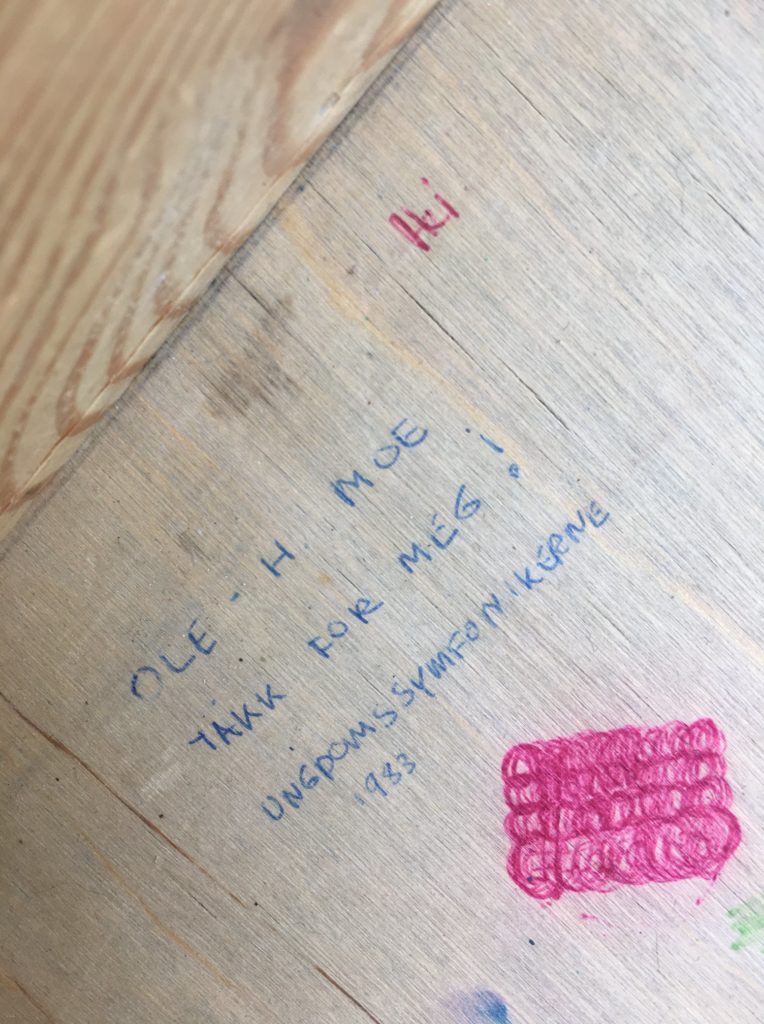 Aki
OLE - H. MOE
TAKK FOR MEG!
UNGDOMSSYMFONIKERNE
1983